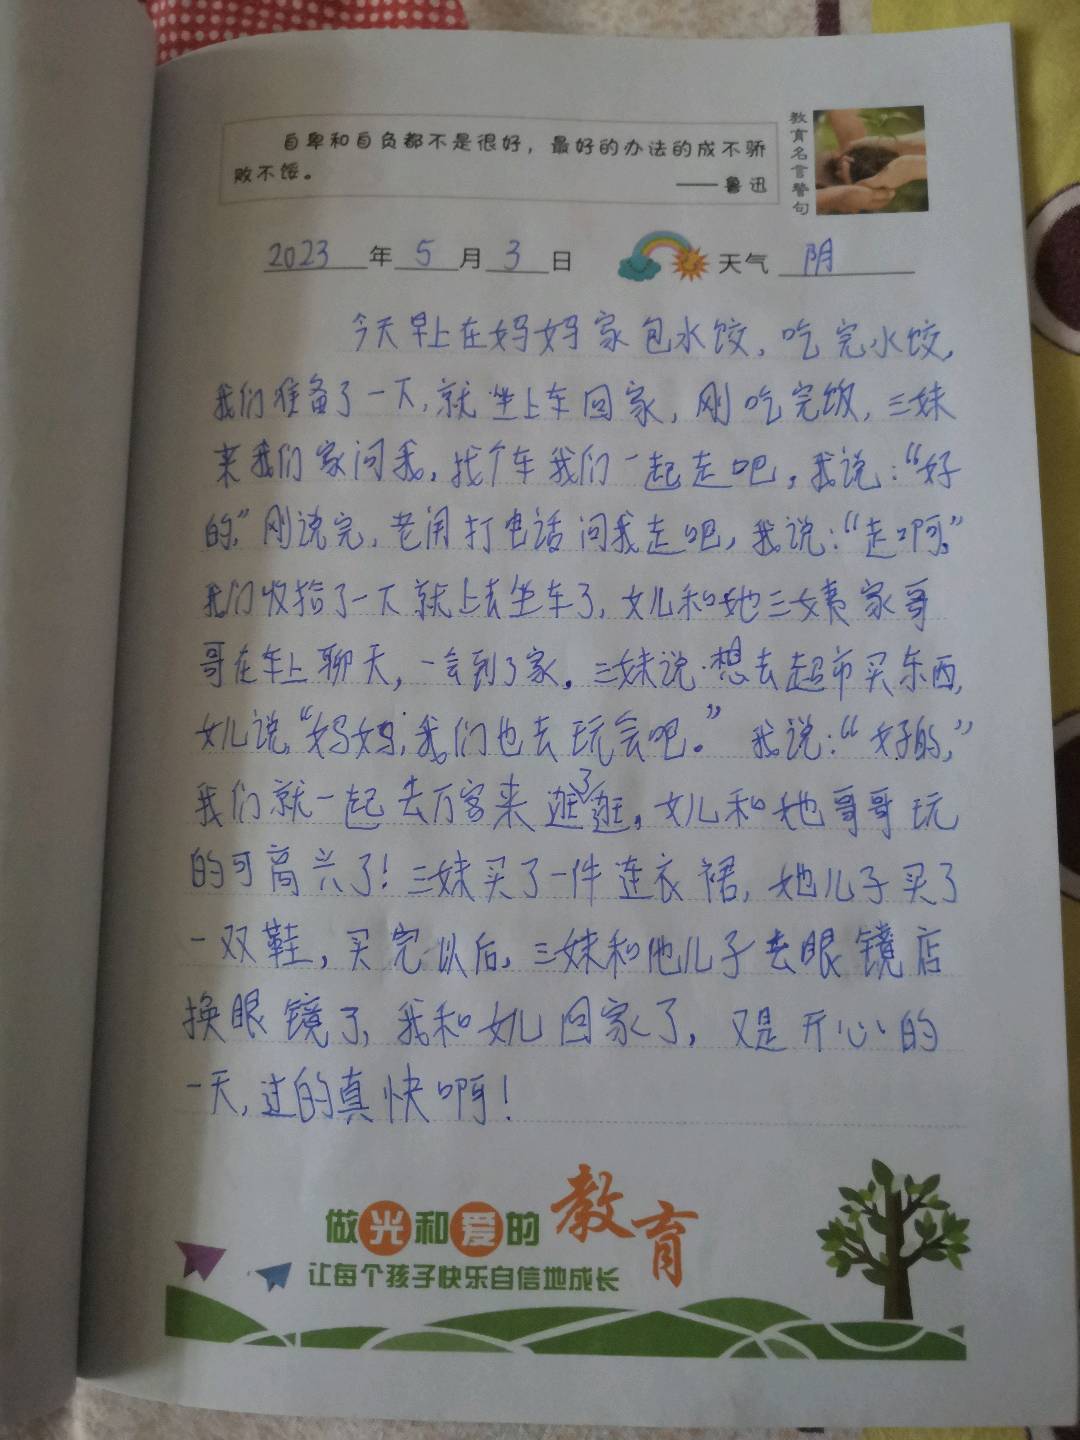 自卑和自负都不是很好，最好的办法的成不骄
败不馁。
——鲁迅
教育名言警句
2023年5月3日 天气 阴
今天早上在妈妈家包水饺，吃完水饺，
我们准备了一下，就坐上车回家，刚吃完饭，三妹
来我们家问我，找个车我们一起走吧，我说：“好
的，”刚说完，老闺打电话问我走吧，我说：“走啊。”
我们收拾了一下就上去坐车了，女儿和她三姨家哥
哥在车上聊天，一会到了家。三妹说：想去超市买东西，
女儿说，“妈妈，我们也去玩会吧。”我说：“好的，”
我们就一起去万客来逛了逛，女儿和她哥哥玩
的可高兴了！三妹买了一件连衣裙，她儿子买了
一双鞋，买完以后，三妹和他儿子去眼镜店
换眼镜了，我和女儿回家了，又是开心的
一天，过的真快啊！
做光和爱的教育
让每个孩子快乐自信地成长